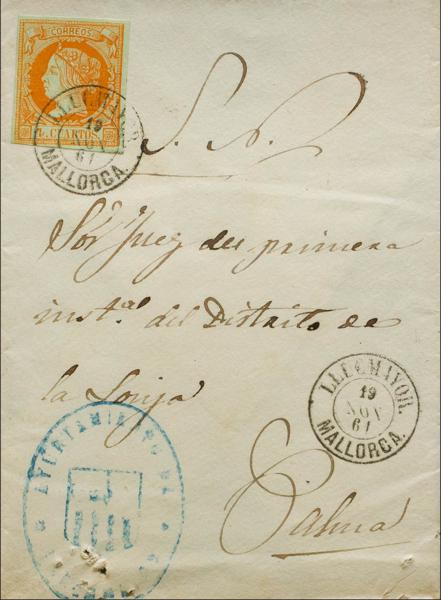 CORREOS
4 CUARTOS
LLUCHMAYOR.
19
NOV
61
MALLORCA.
S. N.
Sõr Juez del primera
inst.ª del Distrito de
la Lonja
LLUCHMAYOR.
19
NOV
61
MALLORCA.
AYUNTAMIENTO DE
Palma